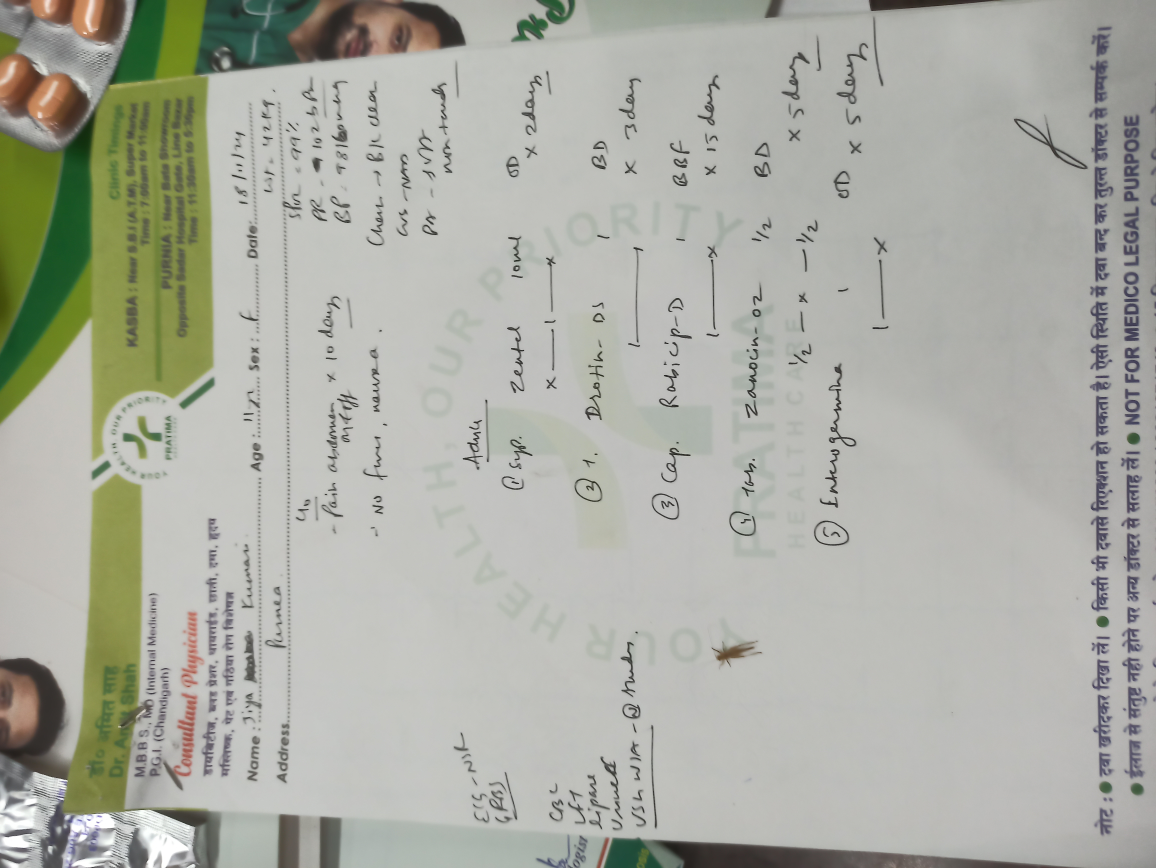 डॉ० अमित साह
Dr. Amit Shah
M.B.B.S., MD (Internal Medicine)
P.G.I. (Chandigarh)
Consultant Physician
डायबिटीज, ब्लड प्रेशर, थायराईड, छाती, दमा, हृदय
मस्तिष्क, पेट एवं गठिया रोग विशेषज्ञ
YOUR HEALTH OUR PRIORITY
PRATIMA
Clinic Timings
KASBA : Near S.B.I (A.T.M), Super Market
Time : 7:00am to 11:00am
PURNIA : Near Bata Showroom
Opposite Sadar Hospital Gate, Line Bazar
Time : 11:30am to 5:30pm
Name : Jiya Kumari Age : 11yr Sex : F Date: 18/11/24
Address Purnea wt - 42kg.
SPO2 : 99%
PR - 102 bpm
BP : 98/60 mmHg
Chest → B/L clear
CVS - Norm
PA - soft
nontender
- Pain abdomen x 10 days
on & off
→ No fever, nausea.
Advice
① Syp. Zentel 10ml OD x 2days
x — 1 — x
② T. Drotin-DS 1 BD x 3 day
1 — 1
③ Cap. Rabicip-D 1 BBF x 15 days
1 — x
④ Tab. Zanocin-OZ 1/2 BD x 5 days
1/2 — x — 1/2
⑤ Enterogermina 1 OD x 5 days
1 — x
RBS
CBC
LFT
Lipase
USG W/A
YOUR HEALTH, OUR PRIORITY
PRATIMA
HEALTHCARE
नोट : ● दवा खरीदकर दिखा लें। ● किसी भी दवासे रिएक्शन हो सकता है। ऐसी स्थिति में दवा बन्द कर तुरन्त डॉक्टर से सम्पर्क करें।
● ईलाज से संतुष्ट नही होने पर अन्य डॉक्टर से सलाह लें। ● NOT FOR MEDICO LEGAL PURPOSE